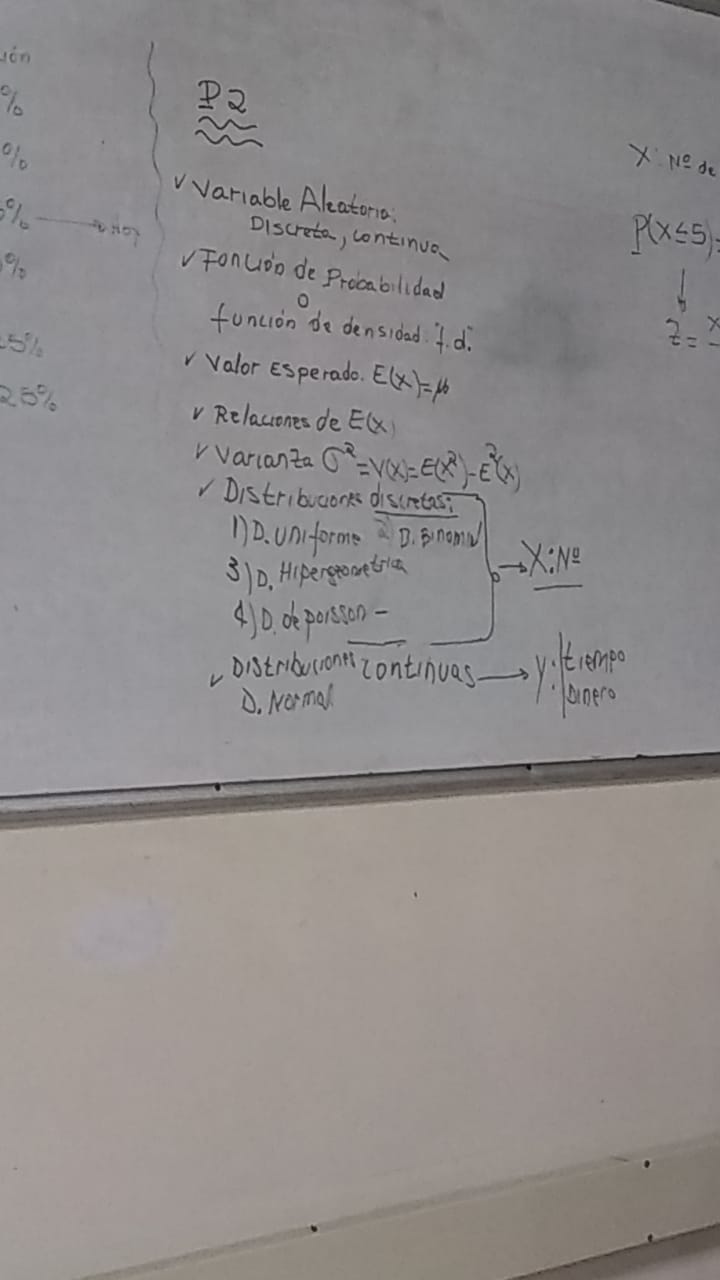 ión
%
%
% → Hoy
%
25%
25%
P2
✓ Variable Aleatoria:
Discreta, continua
✓ Función de Probabilidad
o
función de densidad "f.d."
✓ Valor Esperado. E(x)=μ
✓ Relaciones de E(x)
✓ Varianza σ²=V(x)=E(x²)-E²(x)
✓ Distribuciones discretas:
1) D. Uniforme 2) D. Binomial
3) D. Hipergeometrica
4) D. de poisson -
→ X: Nº
✓ Distribuciones continuas → Y: tiempo
Dinero
D. Normal
X: Nº de
P(X≤5)=
↓
Z = X